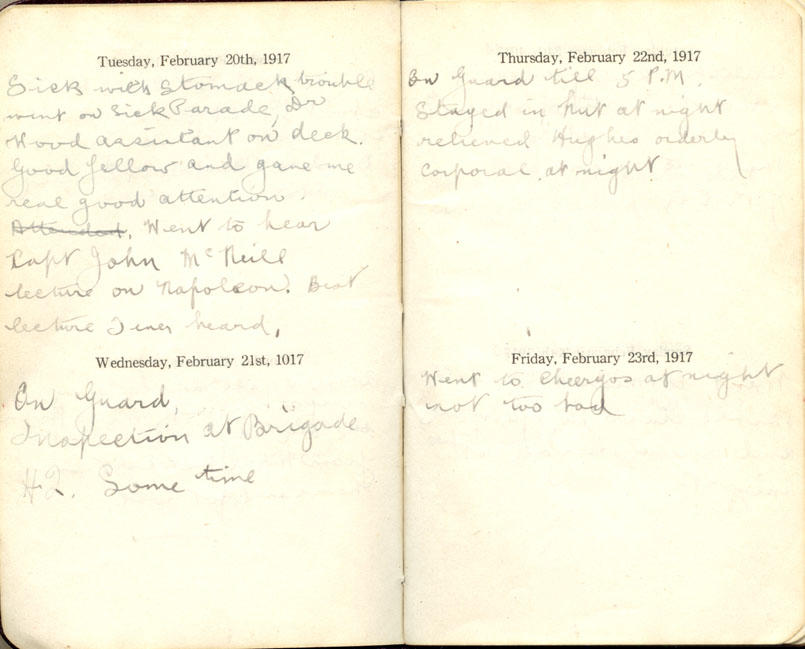 Tuesday, February 20th, 1917
Sick with Stomack trouble
went on Sick Parade, Dr
Wood assistant on deck.
Good fellow and gave me
real good attention.
Attended. Went to hear
Capt John McNeill
lecture on Napoleon. Best
lecture I ever heard,
Wednesday, February 21st, 1017
On Guard,
Inspection at Brigade
H2. Some time
Thursday, February 22nd, 1917
On Guard till 5 P.M.
Stayed in hut at night
relieved Hughes orderly
Corporal at night.
Friday, February 23rd, 1917
Went to Cheeryos at night
not too bad